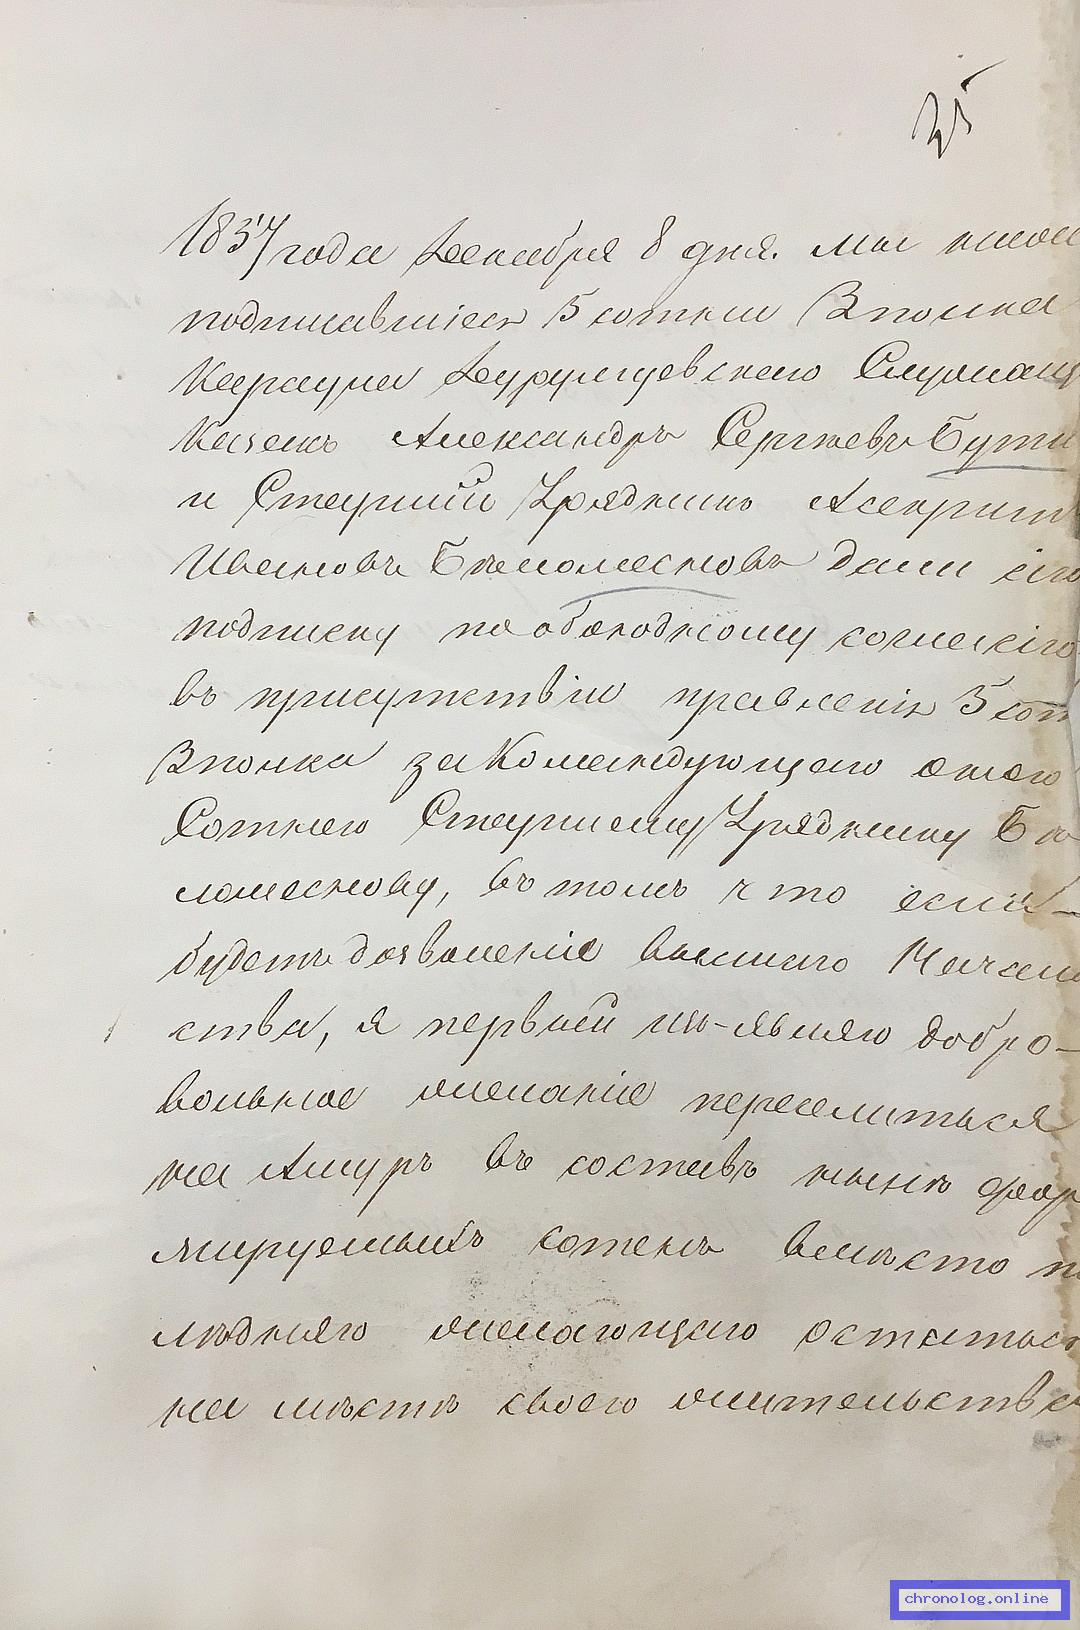 25
1857 года Декабря 8 дня. Мы ниже
подписавшіеся 5 сотни 3 полка
Караула Дурулгуевскаго Служащ
Казакъ Александръ Сергѣевъ Бути
и Старшій Урядникъ Асекрит
Ивановъ Бѣломесновъ дали сію
подписку по обоюдному согласію
въ присутствіи правленія 5 сот
3 полка за Командующаго оною
Сотнею Старшему Уряднику Бѣ
ломеснову, въ томъ что если
будетъ дозволеніе высшаго Началь
ства, я первый изъявляю добро-
вольное желаніе переселиться
на Амуръ въ составъ нынѣ фор
мируемыхъ сотенъ вмѣсто по
лѣдняго желающаго остаться
на мѣстѣ своего жительства
chronolog.online